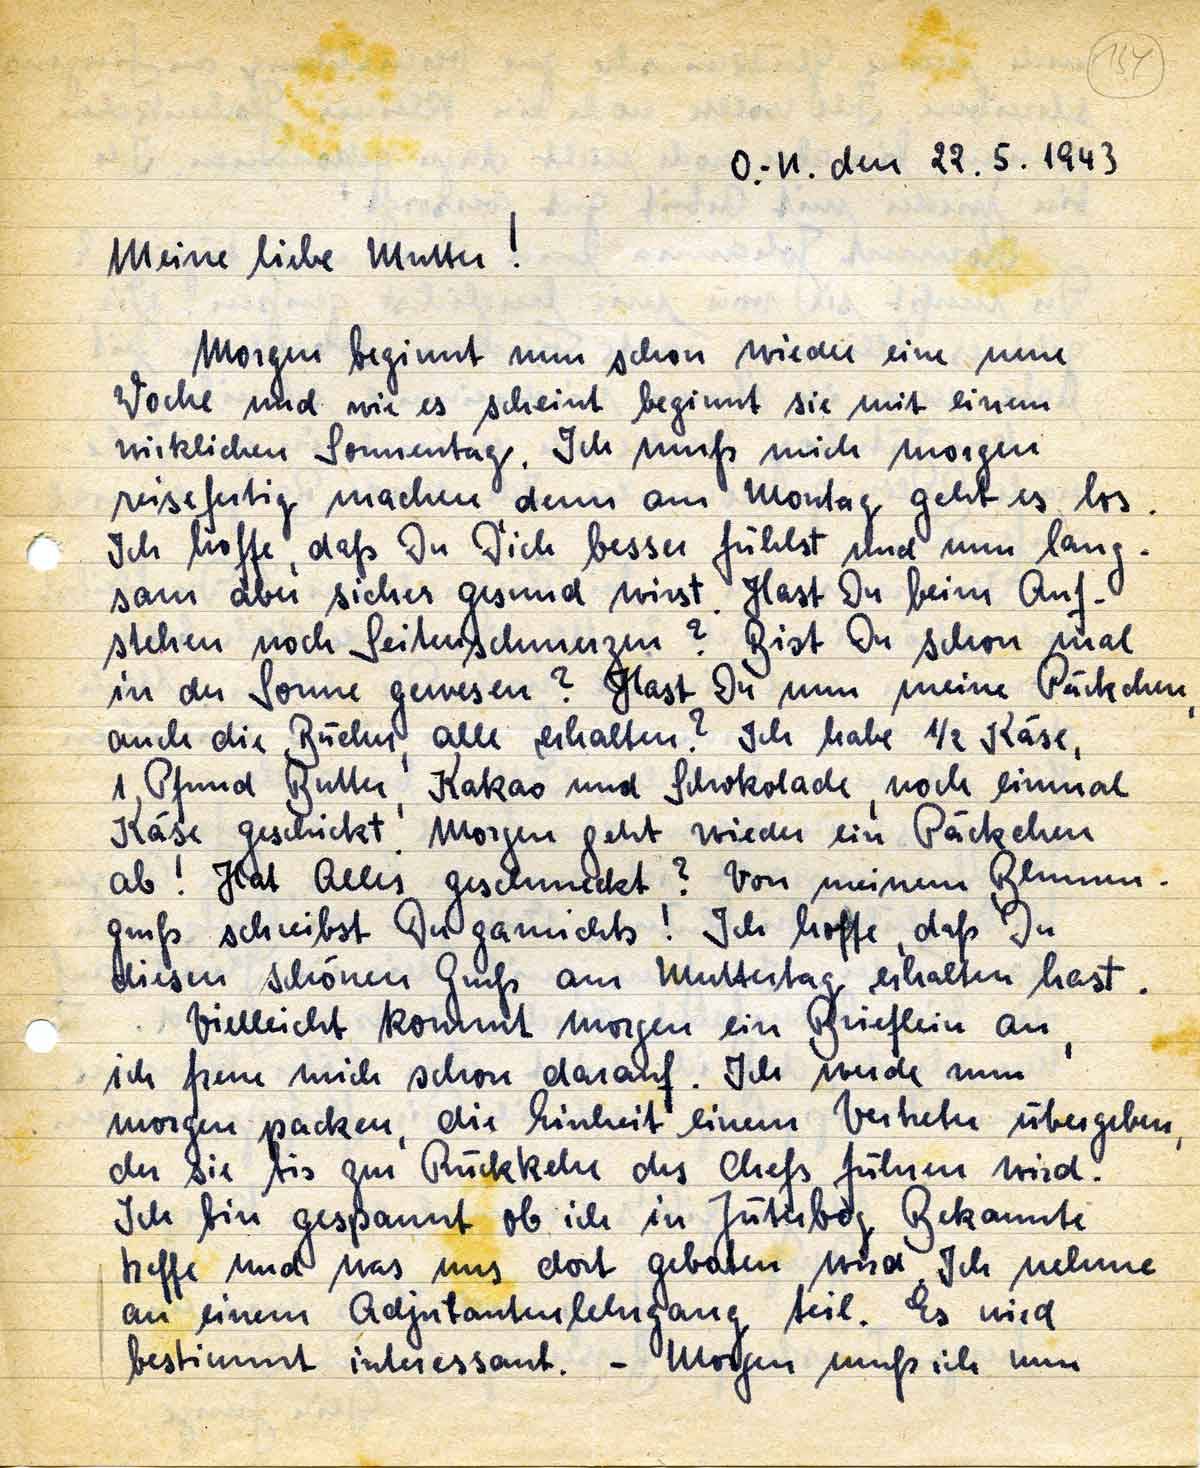 134
O.-U. den 22.5.1943
Meine liebe Mutter!
Morgen beginnt nun schon wieder eine neue
Woche und wie es scheint beginnt sie mit einem
wirklichen Sonnentag. Ich muß mich morgen
reisefertig machen denn am Montag geht es los.
Ich hoffe, daß Du Dich besser fühlst und nun lang-
sam aber sicher gesund wirst. Hast Du beim Auf-
stehen noch Seitenschmerzen? Bist Du schon mal
in der Sonne gewesen? Hast Du nun meine Päckchen,
auch die Bücher, alle erhalten? Ich habe 1/2 Käse,
1 Pfund Butter, Kakao und Schokolade, noch einmal
Käse geschickt. Morgen geht wieder ein Päckchen
ab! Hat Alles geschmeckt? Von meinem Blumen-
gruß schreibst Du garnichts! Ich hoffe, daß Du
diesen schönen Gruß am Muttertag erhalten hast.
Vielleicht kommt morgen ein Brieflein an,
ich freue mich schon darauf. Ich werde nun
morgen packen, die Einheit einem Vertreter übergeben,
der sie bis zur Rückkehr des Chefs führen wird.
Ich bin gespannt ob ich in Jüterbog Bekannte
treffe und was uns dort geboten wird. Ich nehme
an einem Adjutantenlehrgang teil. Es wird
bestimmt interessant. - Morgen muß ich nun